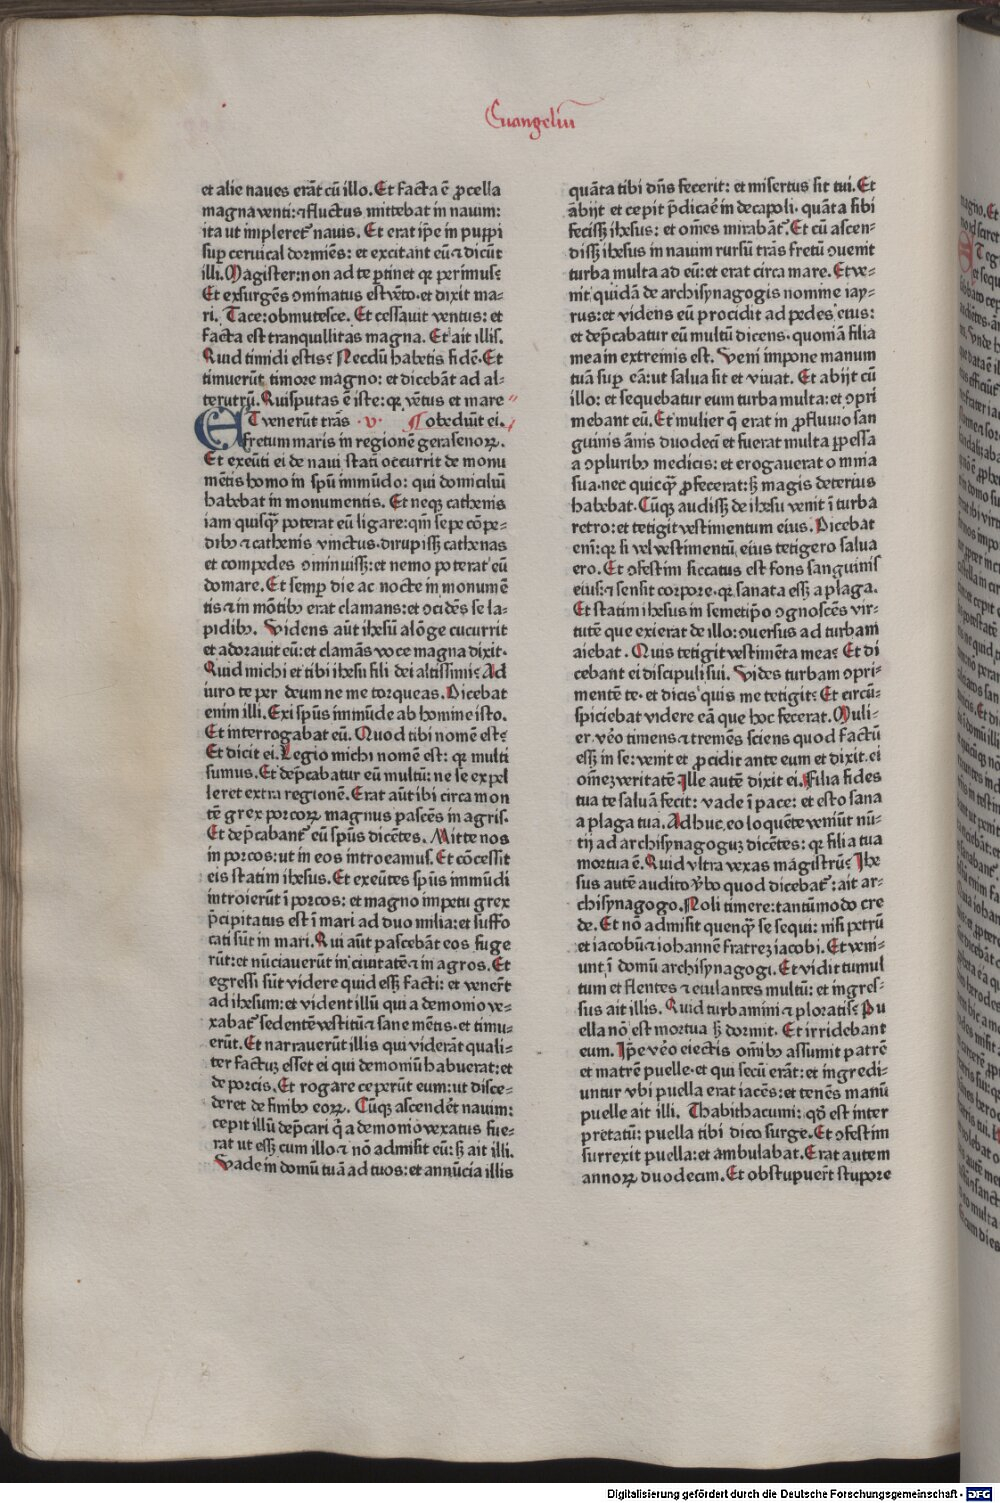 Euangeliū
et alie naues erāt cū illo. Et facta ē ꝓcella
magna venti: ⁊ fluctus mittebat in nauim:
ita ut impleret᷑ nauis. Et erat ip̄e in puppi
suꝑ ceruical dormiēs: et excitant eū ⁊ dicūt
illi. Magister: non ad te ꝑtinet qꝛ perimus?
Et exsurgēs ꝯminatus est vēto. et dixit ma⸗
ri. Tace: obmutesce. Et cessauit ventus: et
facta est tranquillitas magna. Et ait illis.
Quid timidi estis? Necdū habetis fidē. Et
timuerūt timore magno: et dicebāt ad al⸗
terutrū. Quisputas ē iste: qꝛ vētus et mare
ET venerūt trās · v · ¶ obediūt ei.
fretum maris in regionē gerasenoꝝ.
Et exeūti ei de naui statī occurrit de monu
mētis homo in spū immūdo: qui domiciliū
habebat in monumentis. Et neqꝫ cathenis
iam quisqꝫ poterat eū ligare: qm̄ sepe cō pe⸗
dibꝯ ⁊ cathenis vinctus. dirupissꝫ cathenas
et compedes ꝯminuissꝫ: et nemo poterat eū
domare. Et semꝑ die ac nocte in monumē
tis ⁊ in mōtibꝯ erat clamans: et ꝯcidēs se la⸗
pidibꝯ. Videns aūt ihesū alōge cucurrit
et adorauit eū: et clamās voce magna dixit.
Quid michi et tibi ihesu fili dei altissimi? Ad
iuro te per deum ne me torqueas. Dicebat
enim illi. Exi spūs immūde ab homine isto.
Et interrogabat eū. Quod tibi nomē est?
Et dicit ei. Legio michi nomē est: qꝛ multi
sumus. Et dep̄cabatur eū multū: ne se expel
leret extra regionē. Erat aūt ibi circa mon
tē grex porcoꝝ magnus pascēs in agris.
Et dep̄cabant᷑ eū spūs dicētes. Mitte nos
in porcos: ut in eos introeamus. Et cōcessit
eis statim ihesus. Et exeūtes spūs immūdi
introierūt ī porcos: et magno impetu grex
p̄cipitatus est ī mari ad duo milia: et suffo
cati sūt in mari. Qui aūt pascebāt eos fuge
rūt: et nūciauerūt in ciuitatē ⁊ in agros. Et
egressi sūt videre quid essꝫ facti: et venerт
ad ihesum: et vident illū qui a demonio ve⸗
xabat᷑ sedentē vestitū ⁊ sane mētis. et timu⸗
erūt. Et narrauerūt illis qui viderāt quali⸗
ter factuꝫ esset ei qui demoniū habuerat: et
de porcis. Et rogare ceperūt eum: ut disce⸗
deret de finibꝯ eoꝝ. Cūqꝫ ascendēt nauim:
cepit illū dep̄cari q̄ a demonio vexatus fue⸗
rat ut essꝫ cum illo ⁊ nō admisit eū: sꝫ ait illi.
Vade in domū tuā ad tuos: et annūcia illis
quāta tibi dn̄s fecerit: et misertus sit tui. Et
ābijt et cepit p̄dicaē in decapoli. quāta sibi
fecissꝫ ihesus: et om̄es mirabāt᷑. Et cū ascen⸗
dissꝫ ihesus in nauim rursū trās fretū ꝯuenit
turba multa ad eū: et erat circa mare. Et ve⸗
nit quidā de archisynagogis nomine iay⸗
rus: et videns eū procidit ad pedes eius:
et dep̄cabatur eū multū dicens. quoniā filia
mea in extremis est. Veni impone manum
tuā suꝑ eā: ut salua sit et viuat. Et abijt cū
illo: et sequebatur eum turba multa: et ꝯpri
mebant eū. Et mulier q̄ erat in ꝓfluuio san
guinis ānis duodecī et fuerat multa ꝑpessa
a ꝯpluribꝯ medicis: et erogauerat omnia
sua. nec quicqꝫ ꝓfecerat: sꝫ magis deterius
habebat. Cūqꝫ audissꝫ de ihesu venit ī turba
retro: et tetigit vestimentum eius. Dicebat
enī: qꝛ si vel vestimentū eius tetigero salua
ero. Et ꝯfestim siccatus est fons sanguinis
eius: ⁊ sensit corpore. qꝛ sanata essꝫ a plaga.
Et statim ihesus in semetip̄o ꝯgnoscēs vir⸗
tutē que exierat de illo: ꝯuersus ad turbam
aiebat. Quis tetigit vestimēta mea? Et di
cebant ei discipuli sui. Vides turbam ꝯpri⸗
mentē te. et dicis quis me tetigit? Et circū⸗
spiciebat videre eā que hoc fecerat. Muli⸗
er v̄o timens ⁊ tremēs sciens quod factū
essꝫ in se: venit et ꝓcidit ante eum et dixit ei
om̄eꝫ veritatē. Ille autē dixit ei. Filia fides
tua te saluā fecit: vade ī pace: et esto sana
a plaga tua. Adhuc eo loquēte veniūt nū⸗
tij ad archisynagoguꝫ dicētes: qꝛ filia tua
mortua ē. Quid vltra vexas magistrū? Ihe
sus autē audito v̄bo quod dicebat᷑: ait ar⸗
chisynagogo. Noli timere: tantūmodo cre
de. Et nō admisit quenqꝫ se sequi: nisi petrū
et iacobū ⁊ iohannē fratreꝫ iacobi. Et veni⸗
unt ī domū archisynagogi. Et vidit tumul
tum et flentes ⁊ eiulantes multū: et ingres⸗
sus ait illis. Quid turbamini ⁊ ploratis? Pu
ella nō est mortua sꝫ dormit. Et irridebant
eum. Ip̄e v̄o eiectis om̄ibꝯ assumit patrē
et matrē puelle. et qui secū erāt: et ingredi⸗
untur vbi puella erat iacēs: et tenēs manū
puelle ait illi. Thabithacumi: qd̄ est inter
pretatū: puella tibi dico surge. Et ꝯfestim
surrexit puella: et ambulabat. Erat autem
annoꝝ duodecim. Et obstupuerт stupore
Digitalisierung gefördert durch die Deutsche Forschungsgemeinschaft - DFG